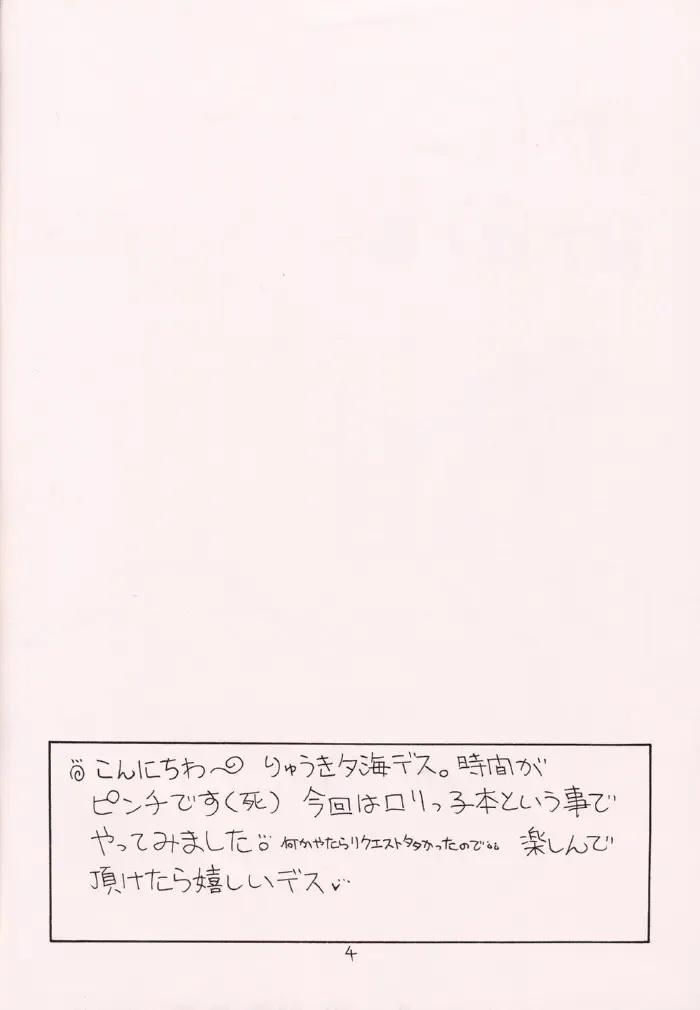 こんにちわ〜 りゅうき夕海デス。時間が
ピンチです(死) 今回はロリっ子本という事で
やってみました 何かやたらリクエスト多かったので。。 楽しんで
頂けたら嬉しいデス
4